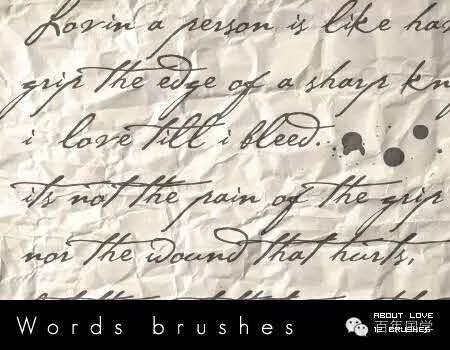 Lovin a person is like hav
grip the edge of a sharp kn
i love till i bleed.
its not the pain of the grip
nor the wound that hurts,
Words brushes
ABOUT LOVE
百年国学
12 BRUSHES